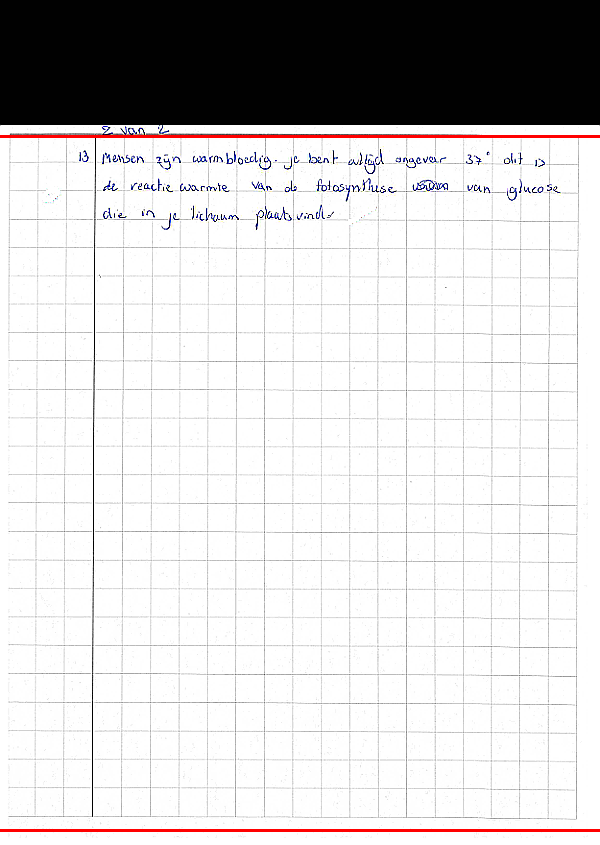 2 van 2
13 Mensen zijn warmbloedig. je bent altijd ongeveer 37° dit is
de reactiewarmte van de fotosynthese van glucose
die in je lichaam plaatsvindt